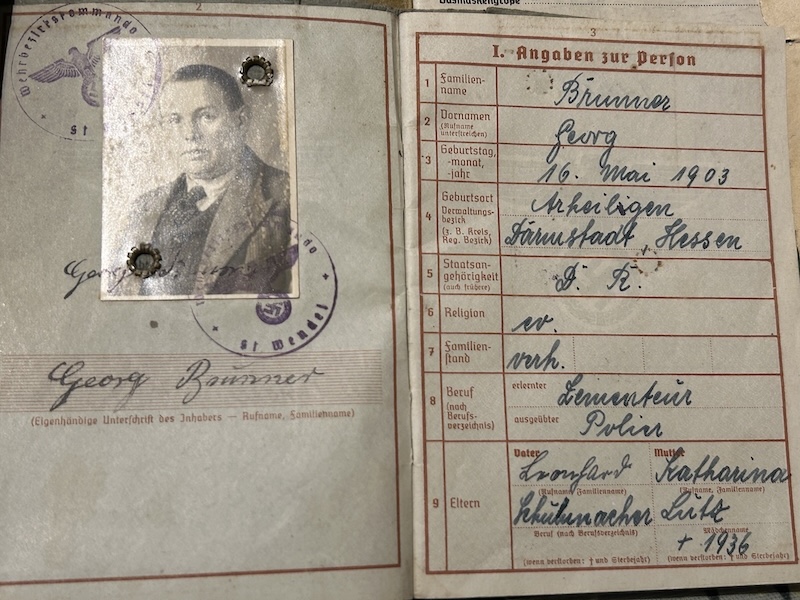 Gasmaskengröße
2
Wehrbezirkskommando
St
Georg
St Wendel
Georg Brunner
(Eigenhändige Unterschrift des Inhabers — Rufname, Familienname)
3
I. Angaben zur Person
1 Familien-
name
Brunner
2 Vornamen
(Rufname
unterstreichen)
Georg
3 Geburtstag,
-monat,
-jahr
16. Mai 1903
4 Geburtsort
Verwaltungs-
bezirk
(z. B. Kreis,
Reg. Bezirk)
Arheiligen
Darmstadt Hessen
5 Staatsan-
gehörigkeit
(auch frühere)
D. R.
6 Religion
ev.
7 Familien-
stand
verh.
8 Beruf
(nach
Berufs-
verzeichnis)
erlernter Zementeur
ausgeübter Polier
9 Eltern
Vater Mutter
Leonhard Katharina
(Rufname Familienname) (Rufname, Familienname)
Schuhmacher Lutz
Beruf (nach Berufsverzeichnis) Mädchenname
+ 1936
(wenn verstorben: † und Sterbejahr) (wenn verstorben: † und Sterbejahr)